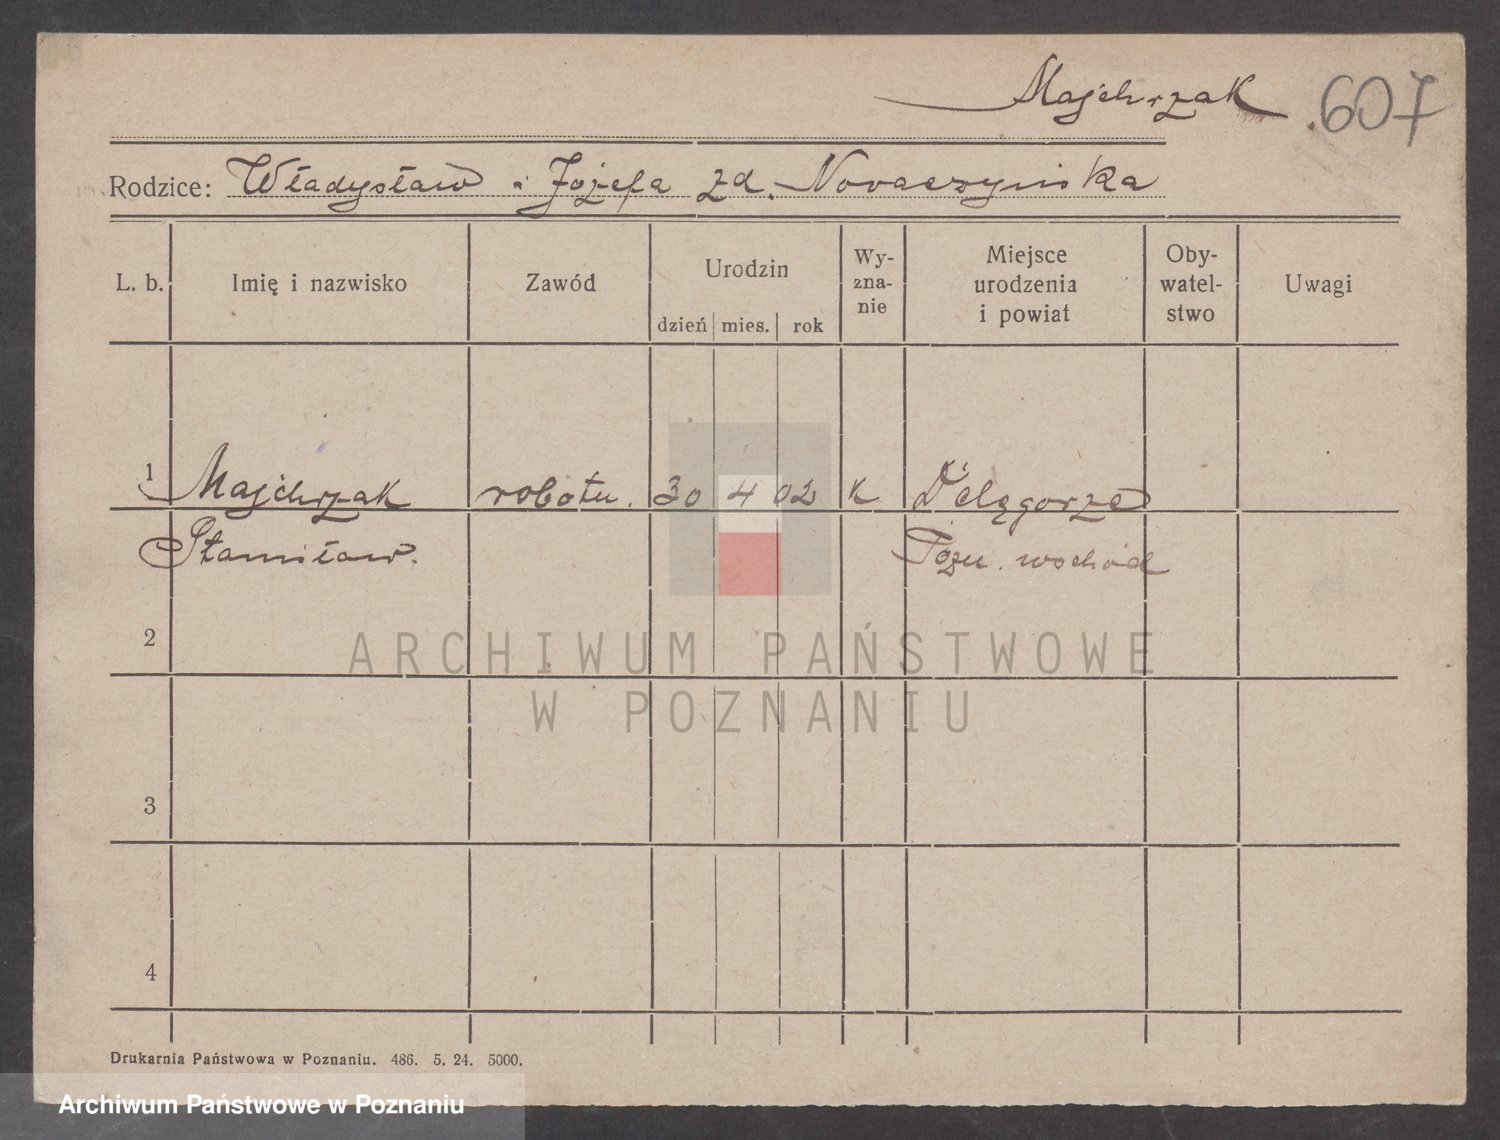 Majchrzak 607
Rodzice: Władysław i Józefa zd. Nowaczyńska
L. b. Imię i nazwisko Zawód Urodzin dzień mies. rok Wy-zna-nie Miejsce urodzenia i powiat Oby-watel-stwo Uwagi
1 Majchrzak robotn. 30 4 02 k
Stanisław. Pozn. wschód
2
ARCHIWUM PAŃSTWOWE
W POZNANIU
3
4
Drukarnia Państwowa w Poznaniu. 486. 5. 24. 5000.
Archiwum Państwowe w Poznaniu